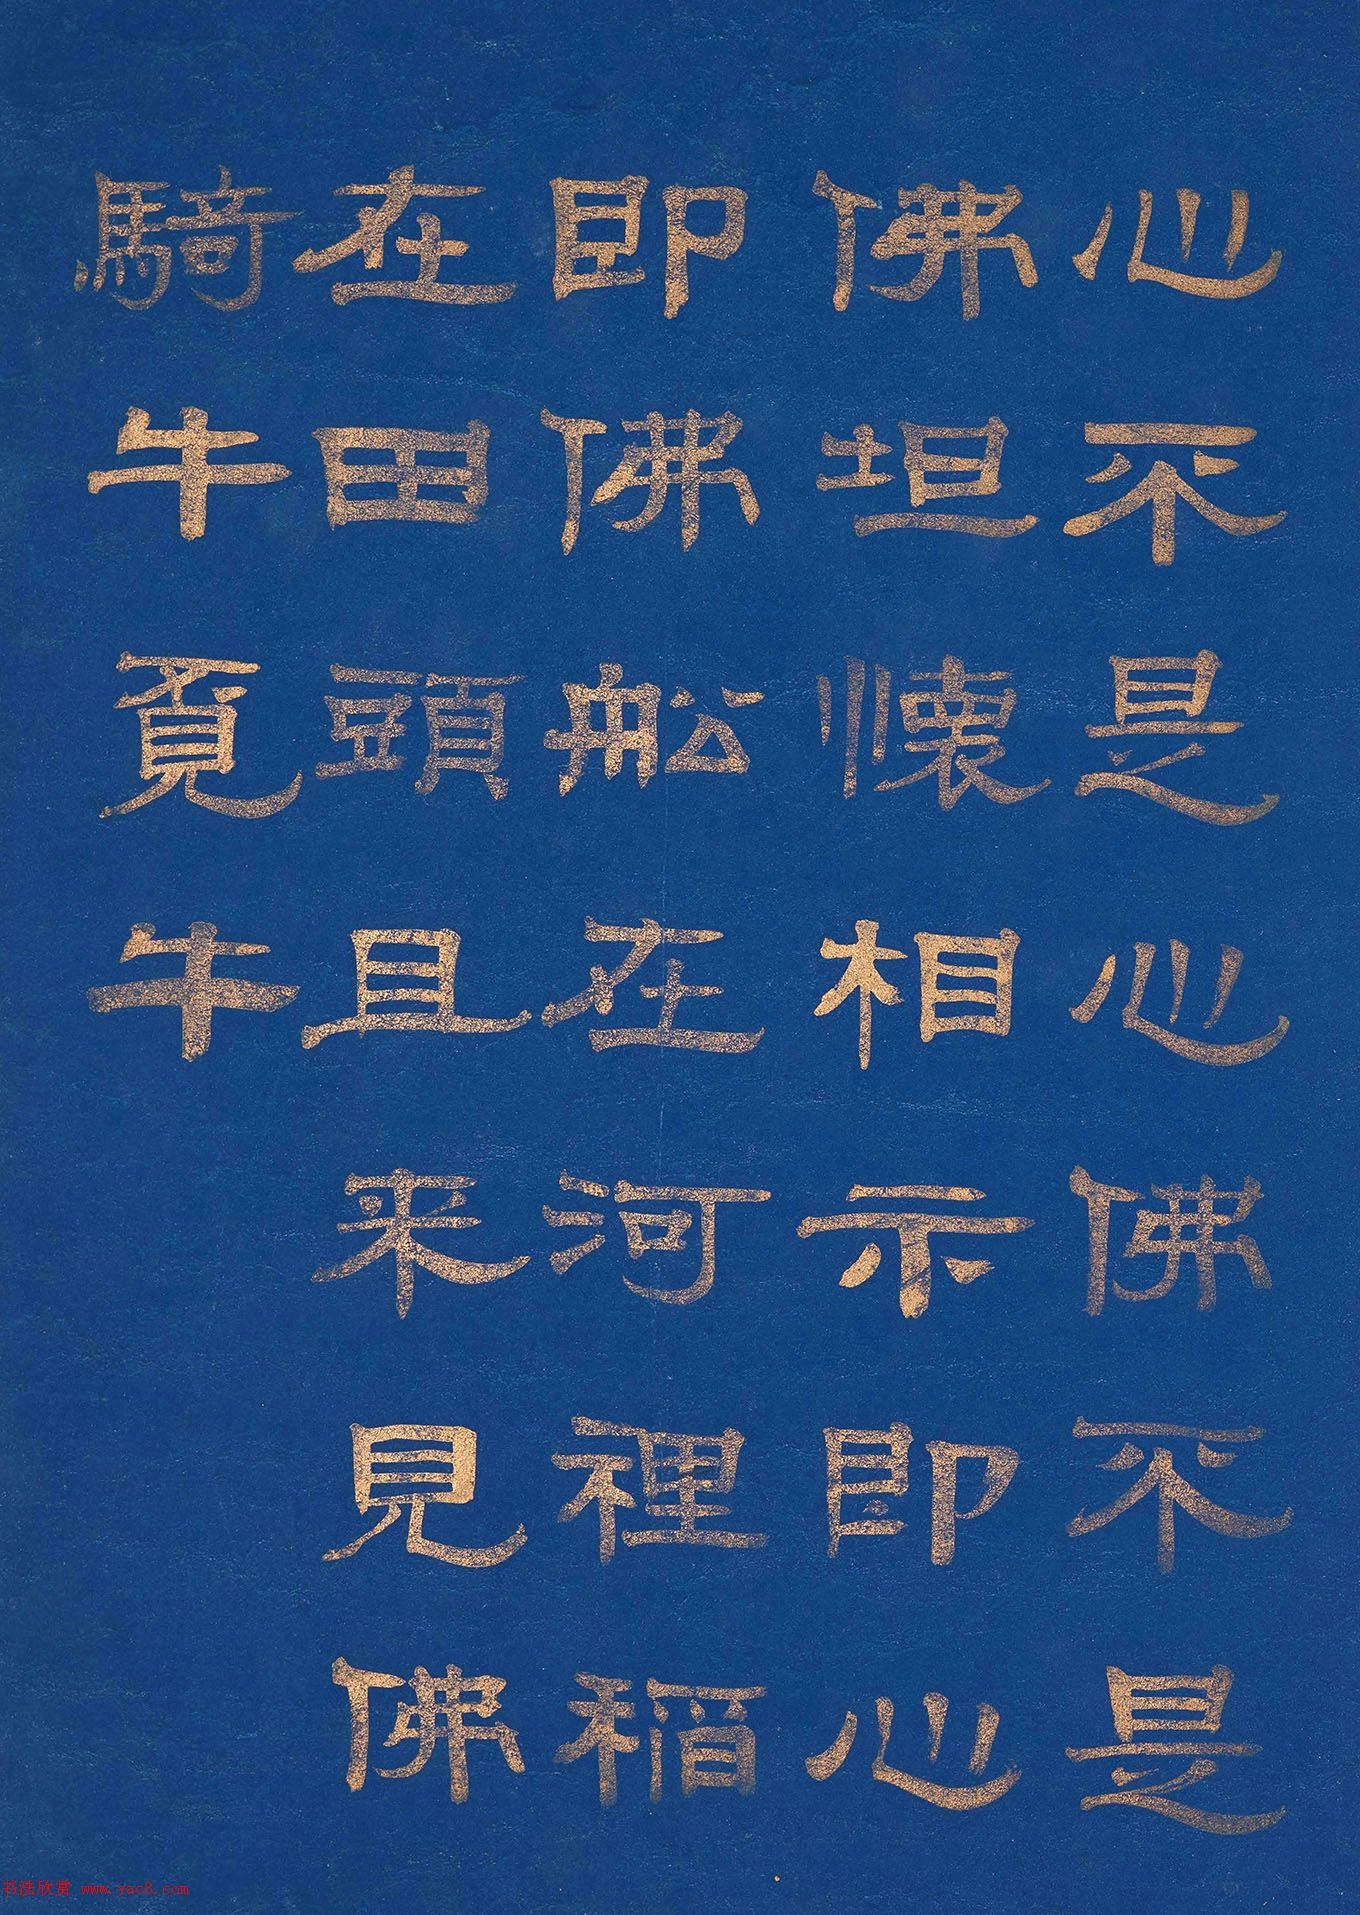 心不是心佛不是
佛坦懷相示即心
即佛船在河裡稻
在田頭且来見佛
騎牛覓牛
书法欣赏 www.yac8.com